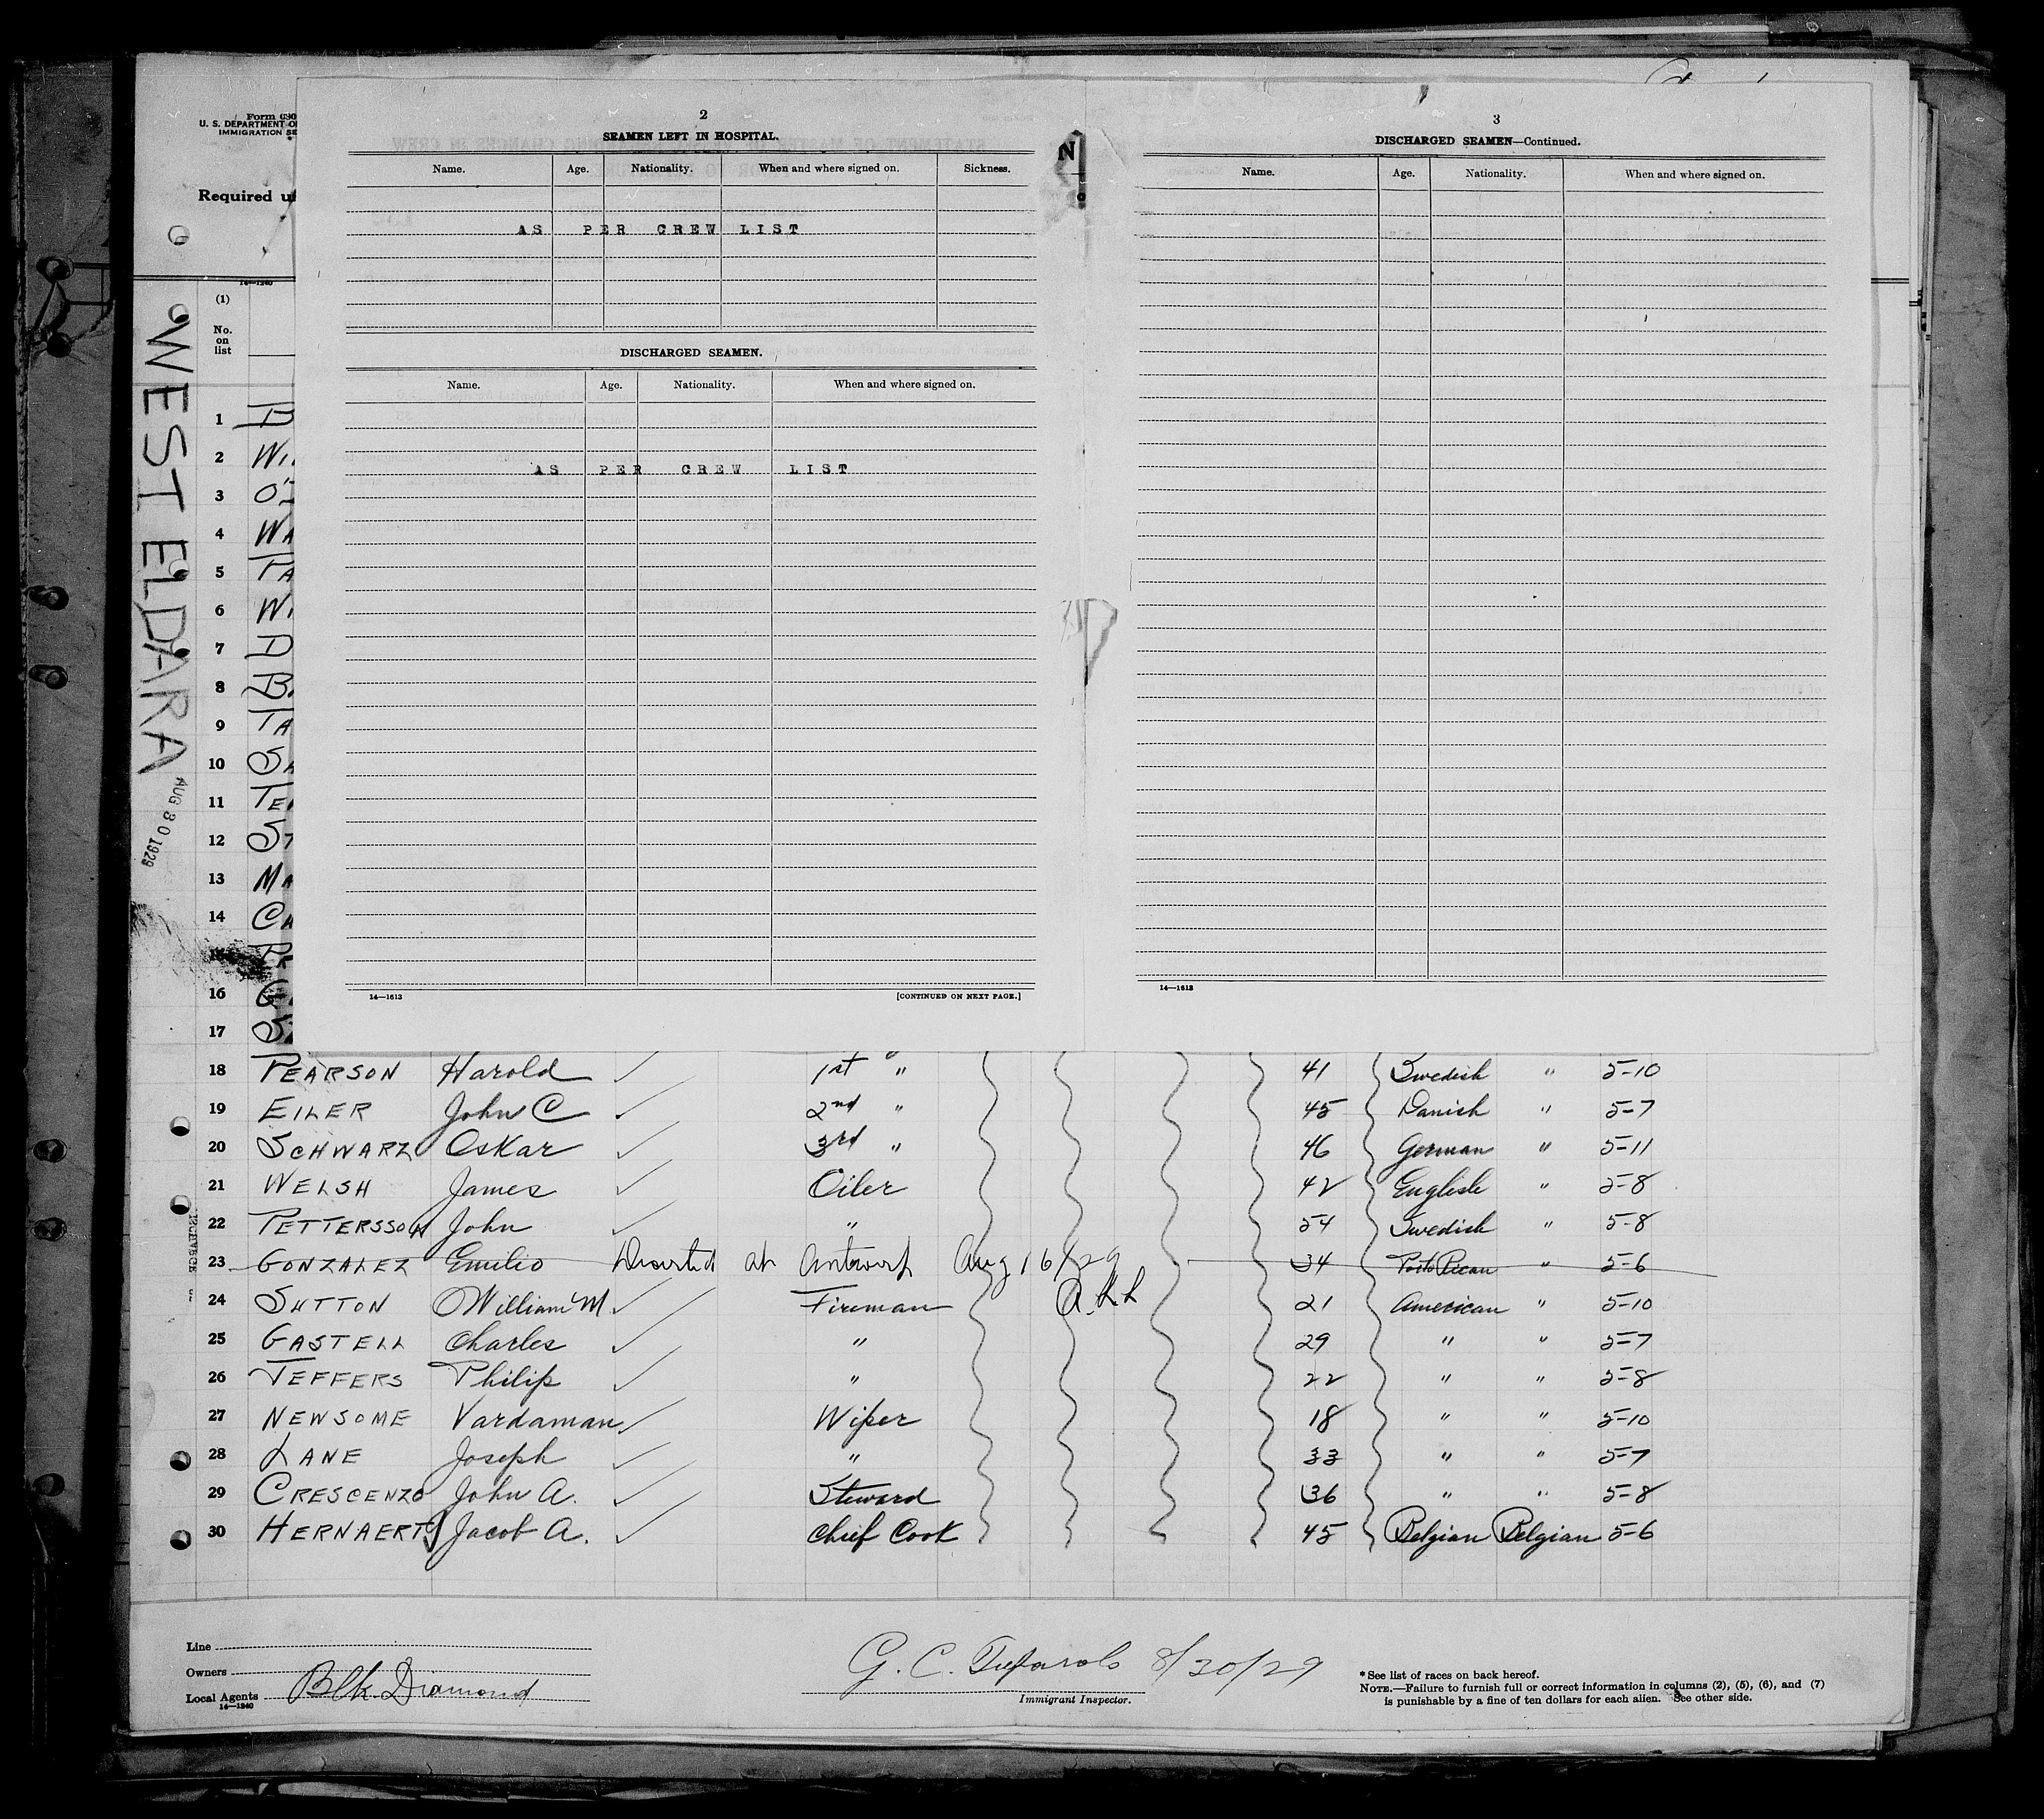 Form 680
U. S. DEPARTMENT O
IMMIGRATION SE
Required u
14—1240
(1)
No.
on
list
WEST ELDARA
AUG 30 1929
2
SEAMEN LEFT IN HOSPITAL.
Name. Age. Nationality. When and where signed on. Sickness.
AS PER CREW LIST
DISCHARGED SEAMEN.
Name. Age. Nationality. When and where signed on.
AS PER CREW LIST
14—1613 [CONTINUED ON NEXT PAGE.]
N
3
DISCHARGED SEAMEN—Continued.
Name. Age. Nationality. When and where signed on.
14—1613
1
2 Wi
3 O'
4 WA
5 PA
6 Wi
7 D
8 B
9 TA
10 SA
11 TE
12 ST
13 MA
14 CA
15
16 G
17 S
18 PEARSON Harold 1st " 41 Swedish " 5-10
19 EILER John C 2nd " 45 Danish " 5-7
20 SCHWARZ Oskar 3rd " 46 German " 5-11
21 WELSH James Oiler 42 English " 5-8
22 PETTERSSON John " 54 Swedish " 5-8
23 GONZALEZ Emilio Deserted at Antwerp Aug 16/29 34 Porto Rican " 5-6
24 SUTTON William M. Fireman 21 American " 5-10
25 GASTELL Charles " 29 " " 5-7
26 JEFFERS Philip " 22 " " 5-8
27 NEWSOME Vardaman Wiper 18 " " 5-10
28 LANE Joseph " 33 " " 5-7
29 CRESCENZO John A. Steward 36 " " 5-8
30 HERNAERTS Jacob A. Chief Cook 45 Belgian Belgian 5-6
Line
Owners
Local Agents Blk. Diamond
14—1240
G. C. 8/30/29
Immigrant Inspector.
* See list of races on back hereof.
NOTE.—Failure to furnish full or correct information in columns (2), (5), (6), and (7)
is punishable by a fine of ten dollars for each alien. See other side.